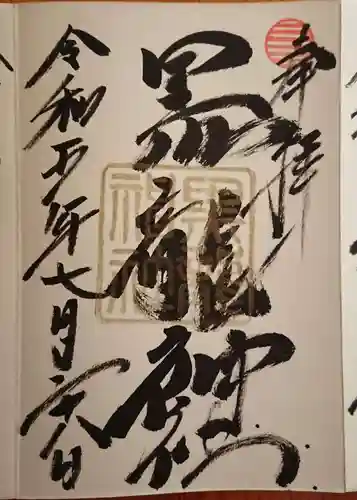 奉拝
黒龍神社
令和五年七月二六日